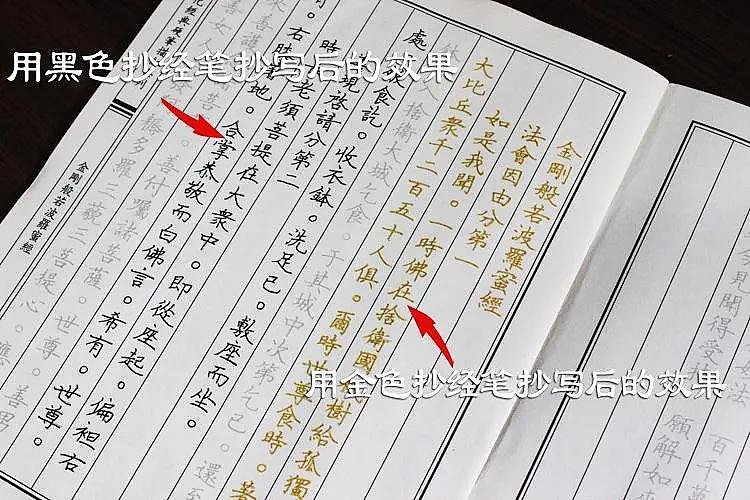 用黑色抄经笔抄写后的效果
用金色抄经笔抄写后的效果
金剛般若波羅蜜經
法會因由分第一
如是我聞。一時佛在捨衛國樹給孤獨
大比丘衆千二百五十人俱。爾時世尊食時。著
入捨衛大城乞食。于其城中次第乞已。還至
處飯食訖。收衣鉢。洗足已。敷座而坐。
現啓請分第二
時老須菩提在大衆中。即從座起。偏袒右
右膝地。合掌恭敬而白佛言。希有。世尊。
善付囑諸菩薩。世尊。善男
耨多羅三藐三菩提心。應
金剛般若波羅蜜經
百千
今見聞得受法
願解如